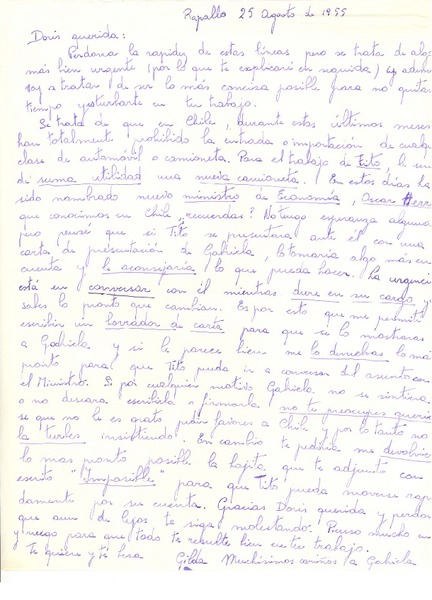 Rapallo 25 Agosto de 1955
Doris querida:
Perdona la rapidez de estas lineas pero se trata de algo
más bien urgente (por lo que te explicaré en seguida) y además
voy a tratar de ser lo más concisa posible para no quitar
tiempo y estorbarte en tu trabajo.
Se trata de que en Chile, durante estos últimos meses
han totalmente prohibido la entrada o importación de cualq
clase de automóvil o camioneta. Para el trabajo de Tito, le
de suma utilidad una nueva camioneta. En estos días ha
sido nombrado nuevo ministro de Economía, Oscar Herr
que conocimos en Chile, recuerdas? No tengo esperanza alguna
pero pensé que si Tito se presentara ante él con una
carta de presentación de Gabriela, lo tomaría algo más en
cuenta y le aconsejaría lo que pueda hacer. La urgencia
está en conversar con él mientras dure en su cargo, ya
sabes lo pronto que cambian. Es por esto que me permito
escribir un borrador de carta para que se lo mostraras
a Gabriela y si le parece bien me lo devuelvas lo más
pronto para que Tito pueda ir a conversar del asunto con
el Ministro. Si por cualquier motivo Gabriela no se sintiera
o no deseara escribirla o firmarla no te preocupes querida
se que no le es grato pedir favores a Chile y por lo tanto no
la turbes insistiendo. En cambio te pediría me devolvie
lo más pronto posible la hojita que te adjunto con
escrito "Imposible" para que Tito pueda moverse rapi
damente por su cuenta. Gracias Doris querida y perdon
que aun de lejos te siga molestando. Pienso mucho en
y ruego para que todo te resulte bien en tu trabajo.
Te quiere y te besa Gilda Muchísimos cariños a Gabriela